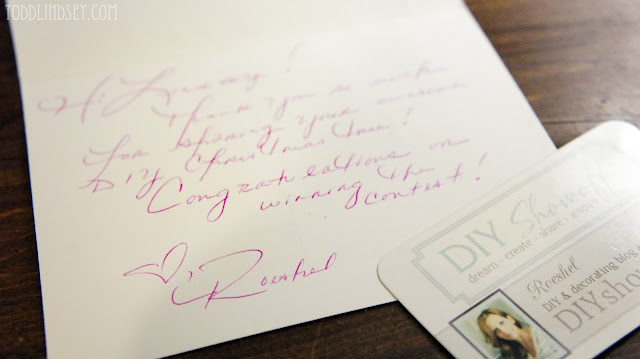 TODDLINDSEY.COM
Hi Lindsey!
Thank you so much
for sharing your awesome
DIY Christmas tree!
Congratulations on
winning the
contest!
Roeshel
DIY Show
dream · create · share ·
Roeshel
DIY & decorating blog
DIYsho